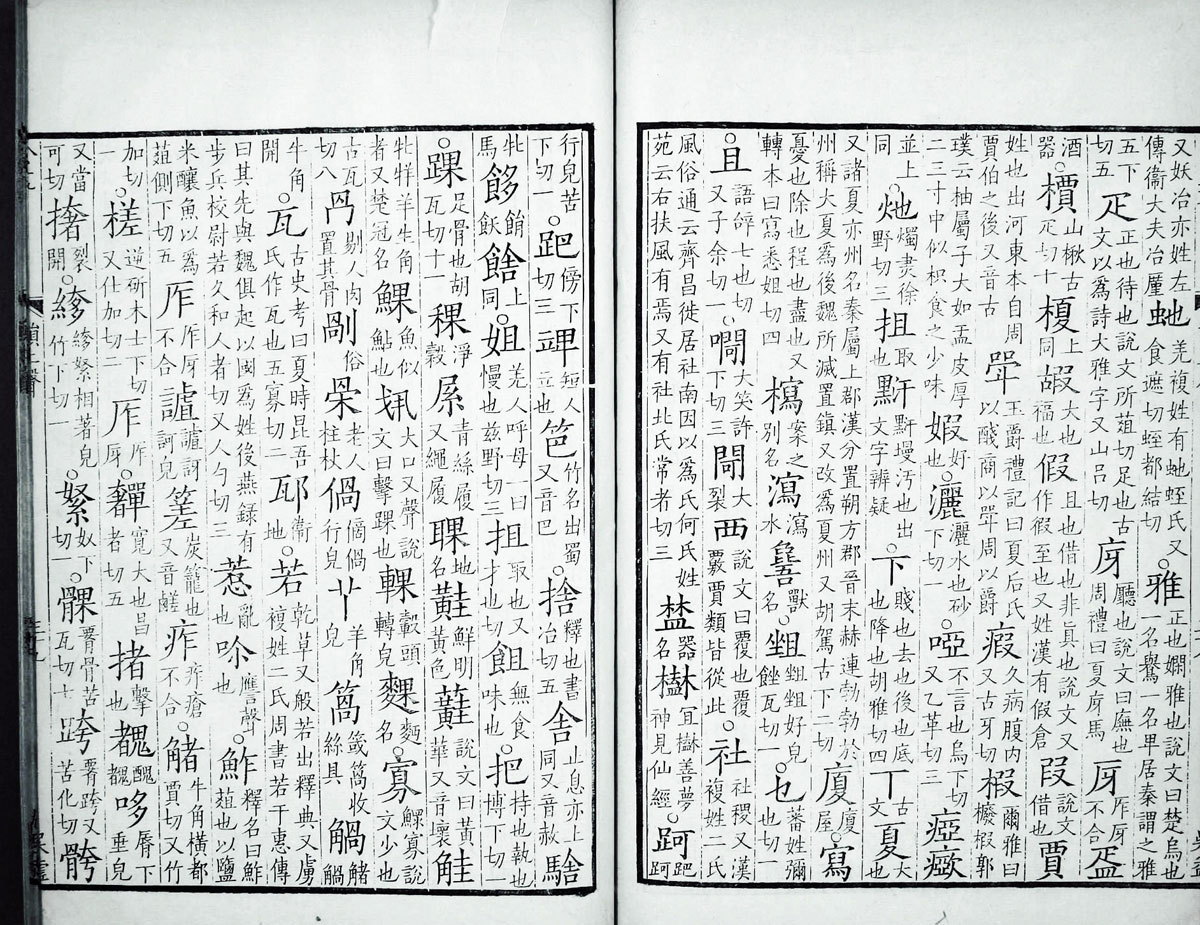 又妖冶亦姓左傳衞大夫冶厪 虵羌複姓有虵蛭氏又食遮切蛭都結切○雅正也嫺雅也說文曰楚烏也一名鸒一名卑居秦謂之雅
五下切五 疋正也待也說文所葅切足也古文以為詩大雅字又山呂切 庌廳也說文曰廡也周禮曰夏庌馬 厊厏厊不合
酒器○檟山楸古疋切十 榎上同 嘏大也福也 假且也借也非真也說文又作假至也又姓漢有假倉 叚說文借也 賈
姓也出河東本自周賈伯之後又音古 斝玉爵禮記曰夏后氏以醆商以斝周以爵 瘕久病腹内又古牙切 椵爾雅曰櫠椵郭
璞云柚屬子大如盂皮厚二三寸中似枳食之少味 婽好也○灑灑水也砂下切一○啞不言也烏下切又乙革切三 瘂
並上同○灺燭㶳徐野切三 抯取也 䵟墁污也出文字辨疑○下賤也去也後也底也降也胡雅切四 丅古文 夏大也
又諸夏亦州名秦屬上郡漢分置朔方郡晉末赫連勃勃於州稱大夏為後魏所滅置鎮又改為夏州又胡駕古下二切 廈廈屋○寫
憂也除也程也盡也又轉本曰寫悉姐切四 案之別名 瀉瀉水 獸名 好皃銼瓦切一○乜蕃姓彌
也切一○且語辭七也切又子余切一 大笑許下切三 閜大裂 襾說文曰覆也覈賈類皆從此○社社稷又漢複姓二氏
風俗通云齊昌徙居社南因以為氏何氏姓苑云右扶風有焉又有社北氏常者切三 器名 善夢神見仙經○跒跁跒
行皃苦下切一○跁傍下切三 短人立也 笆竹名出蜀又音巴○捨釋也書冶切五 舍止息亦上同又音赦 騇
牝馬 上同○姐羌人呼母一曰慢也兹野切三 抯取也又才也切 無食味也○把持也執也博下切一
○踝足骨也胡瓦切十一 稞淨穀 青絲履又繩履 名 黊鮮明黃色 蘳說文曰黃華又音壞 觟
牝牂羊生角者又楚冠名 魚似鮎也 大口又聲說文曰擊踝也 輠轂頭轉皃 麵○寡鰥寡說文少也
古瓦切八 冎剔人肉置其骨 剮俗 老人柱杖 行皃 羊角皃 收絲具 觰
牛角開○瓦古史考曰夏時昆吾氏作瓦也五寡切二 邷衞地○若乾草又般若出釋典又虜複姓二氏周書若干惠傳
曰其先與魏俱起以國為姓後燕録有步兵校尉若久和人者切又人勺切三 惹亂也 譍聲也○鮓釋名曰鮓葅也以鹽
米釀魚以為葅側下切五 厏厏厊不合 訶皃 炭籠也又音鹺 痄痄瘡不合○觰牛角橫都賈切又竹
加切○槎逆斫木士下切又仕加切二 厏厏厊○奲寬大也昌者切五 撦擊也 哆脣下垂皃
又當可切 撦裂開 相著皃竹下切一 奴下切○髁骨苦瓦切十 跨又苦化切 骻